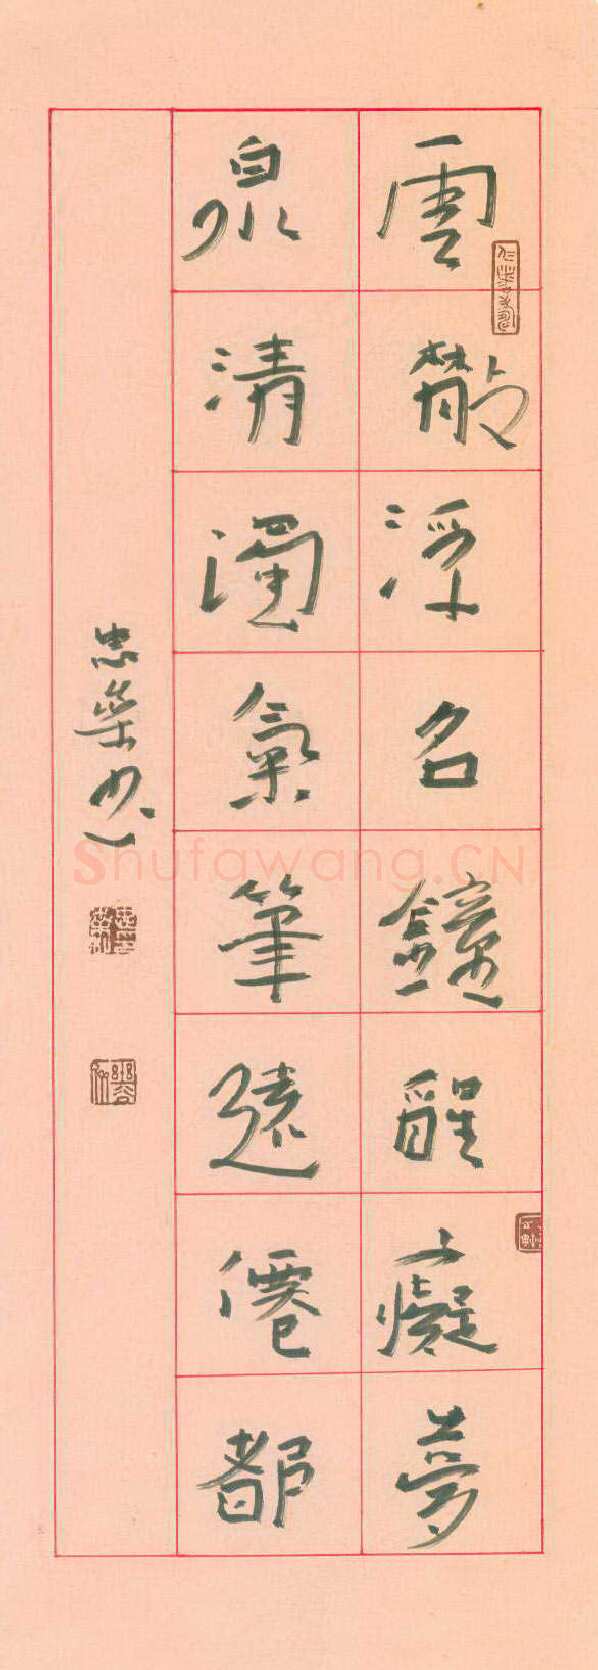 雲散浮名鐘醒癡夢
泉清濁氣筆遠僊都
忠榮書
Shufawang.CN